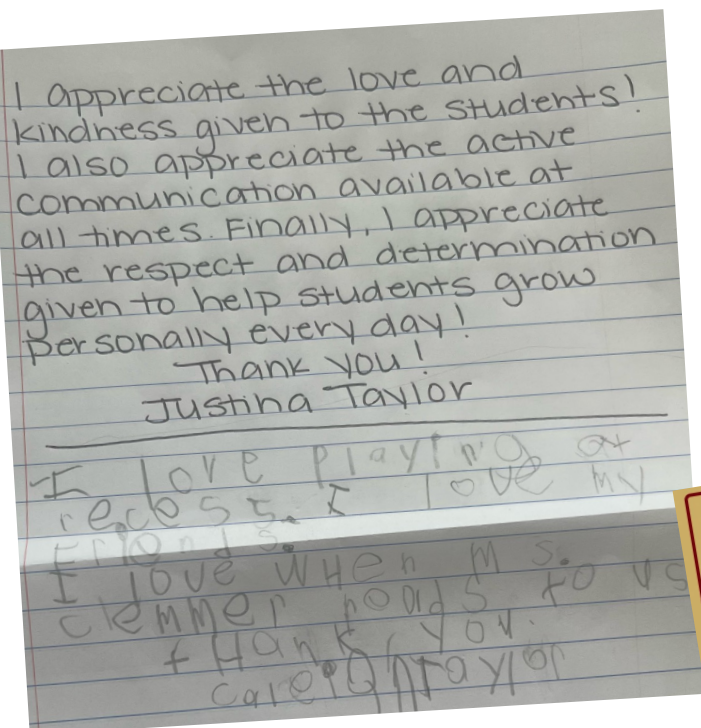 I appreciate the love and
kindness given to the students!
I also appreciate the active
communication available at
all times. Finally, I appreciate
the respect and determination
given to help students grow
personally every day!
Thank you!
Justina Taylor
I love playing at
recess. I love my
friends.
I love when Ms.
clemmer reads to us
tHank you.
Taylor